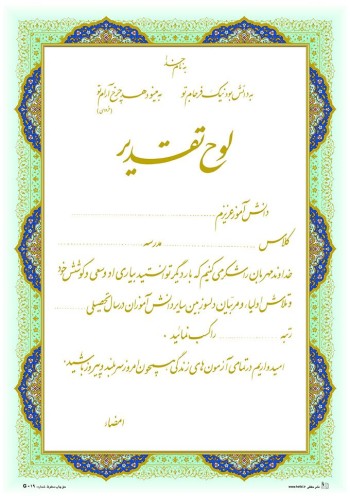 به نام خدا
به دانش بود نیک فرجام تو به مینو دهد چرخ آرام تو
(فردوسی)
لوح تقدیر
دانش آموز عزیزم
کلاس مدرسه
خداوند مهربان را شکر می کنیم که بار دیگر توانستید بیاری او و سعی و کوشش خود
و تلاش اولیاء و مربیان دلسوز بین سایر دانش آموزان در سال تحصیلی
رتبه را کسب نمائید .
امیدواریم در تمامی آزمون های زندگی همچون امروز سربلند و پیروز باشید.
امضاء